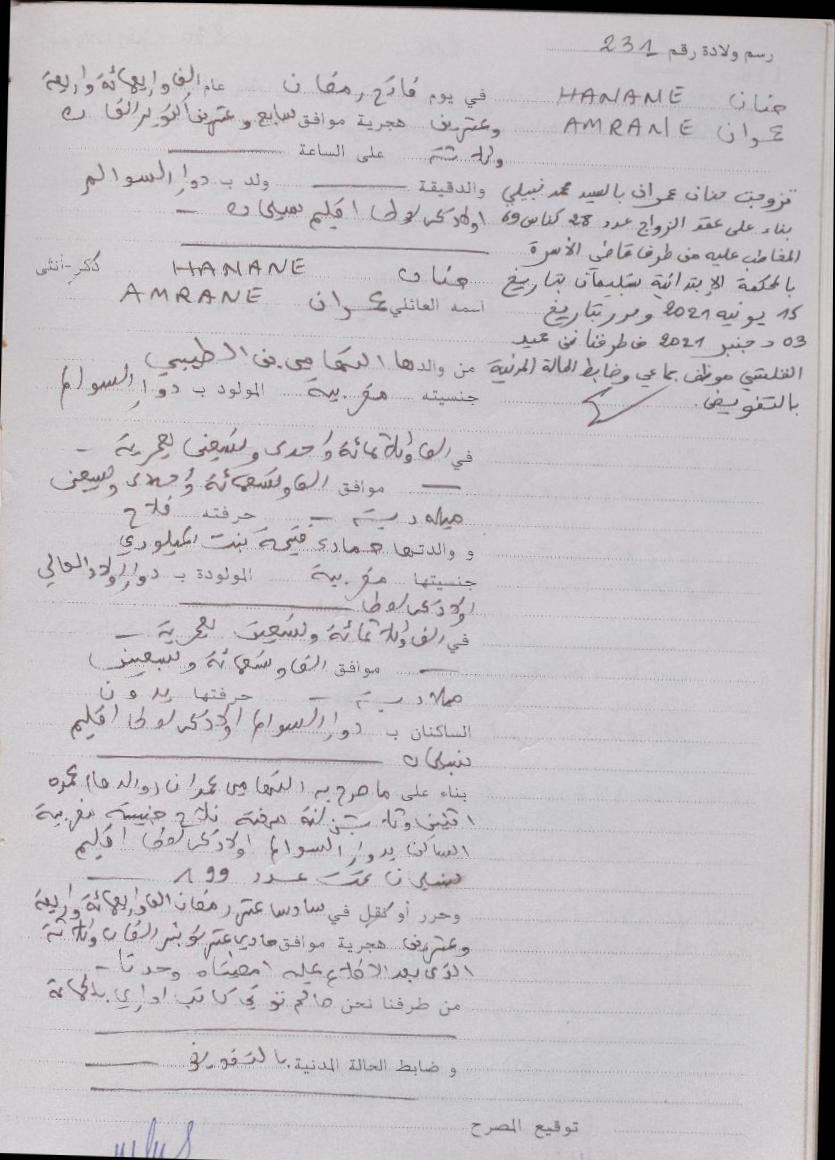 رسم ولادة رقم 231
حنان HANANE
عمران AMRANE
تزوجت حنان عمران بالسيد محمد نبيلي
بناء على عقد الزواج عدد 28 كناش 69
المخاطب عليه من طرف قاضي الأسرة
بالمحكمة الإبتدائية بسليمان بتاريخ
15 يونيه 2021 وحرر بتاريخ
03 دجنبر 2021 من طرفنا نحن عبد
موظف جماعي وضابط الحالة المدنية
بالتفويض.
في يوم فاتح رمضان عام الف واربعمائة واربعة
وعشرين هجرية موافق سابع وعشرين أكتوبر الفان
وثلاثة على الساعة
والدقيقة ولد ب دوار السوالم
اولاد اقليم بنسليمان
حنان HANANE ذكر-أنثى
اسمه العائلي عمران AMRANE
من والدها التهامي بن الطيبي
جنسيته مغربية المولود ب دوار السوالم
في الف وثلاثمائة واحدى وتسعين هجرية
موافق الف وتسعمائة وإحدى وسبعين
ميلادية حرفته فلاح
و والدتها حمادي فتيحة بنت الميلودي
جنسيتها مغربية المولودة ب دوار اولاد العالي
اولاد
في الف وثلاثمائة وتسعين هجرية
موافق الف وتسعمائة وسبعين
ميلادية حرفتها بدون
الساكنان ب دوار السوالم اولاد اقليم
بنسليمان
بناء على ما صرح به التهامي عمران (والدها) عمره
اثنين وثلاثين سنة مهنته فلاح جنسيته مغربية
الساكن بدوار السوالم اولاد اقليم
بنسليمان تحت عدد 199
وحرر أو نقل في سادس عشر رمضان الف واربعمائة واربعة
وعشرين هجرية موافق حادي عشر نونبر الفان وثلاثة
الذي بعد الاطلاع عليه امضاه وحدنا
من طرفنا نحن كاتب اداري بالجماعة
و ضابط الحالة المدنية بالتفويض
توقيع المصرح